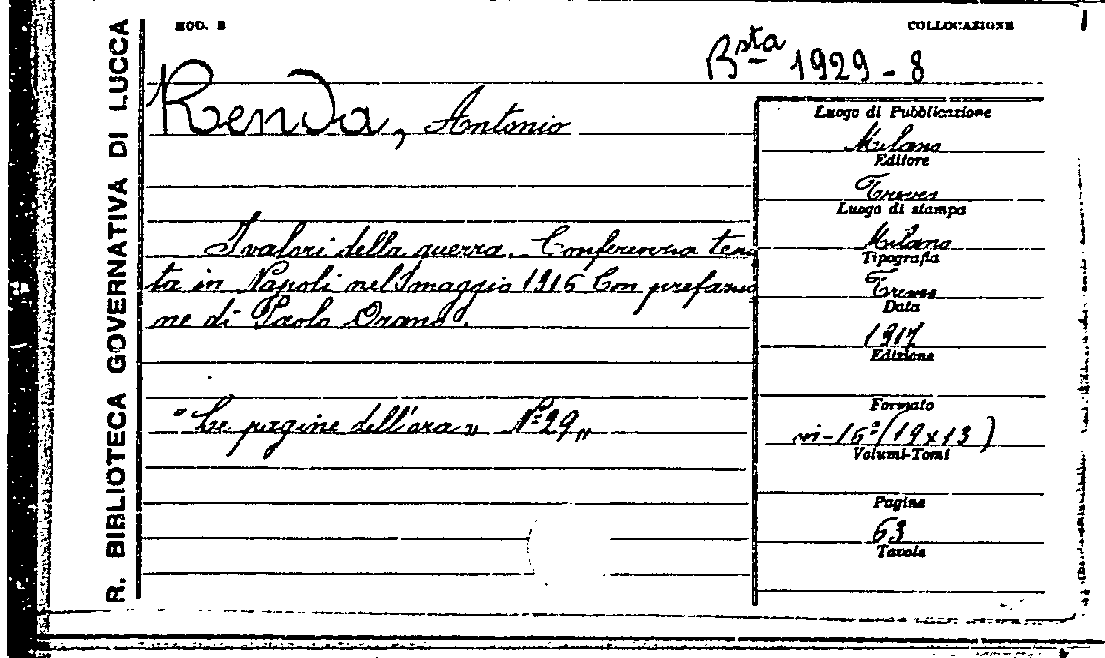 R. BIBLIOTECA GOVERNATIVA DI LUCCA
MOD. B
COLLOCAZIONE
Bsta 1929 - 8
Renda, Antonio
I valori della guerra. Conferenza tenu
ta in Napoli nel maggio 1916 Con prefazio
ne di Paolo Orano.
"Le pagine dell'ora" N° 29"
Luogo di Pubblicazione
Milano
Editore
Treves
Luogo di stampa
Milano
Tipografia
Treves
Data
1917
Edizione
Formato
in-16° (19x13)
Volumi-Tomi
Pagine
63
Tavole